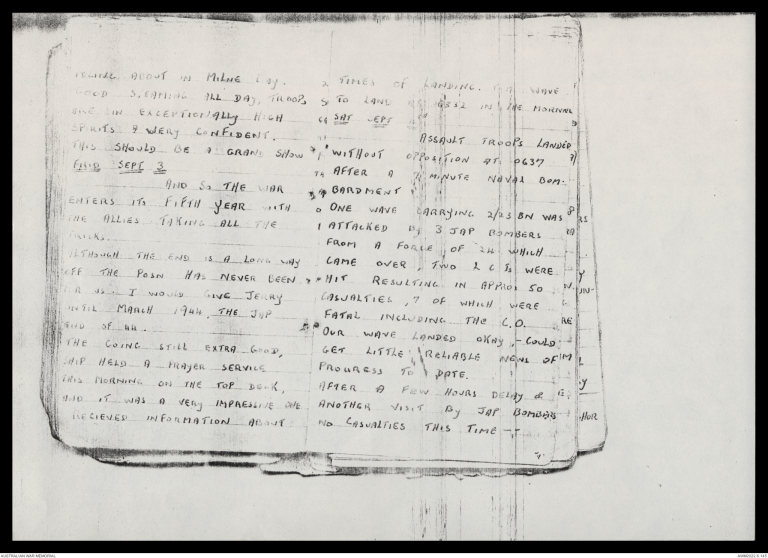 ABOUT IN MILNE BAY.
GOOD STEAMING ALL DAY, TROOPS
ARE IN EXCEPTIONALLY HIGH
SPIRITS & VERY CONFIDENT.
THIS SHOULD BE A GRAND SHOW
FRID SEPT 3
AND SO THE WAR
ENTERS ITS FIFTH YEAR WITH
THE ALLIES TAKING ALL THE
TRICKS.
ALTHOUGH THE END IS A LONG WAY
OFF THE POSN HAS NEVER BEEN
I WOULD GIVE JERRY
UNTIL MARCH 1944. THE JAP
END OF 44.
THE GOING STILL EXTRA GOOD,
SHIP HELD A PRAYER SERVICE
THIS MORNING ON THE TOP DECK,
AND IT WAS A VERY IMPRESSIVE ONE
RECIEVED INFORMATION ABOUT
TIMES OF LANDING. WAVE
TO LAND 0652 IN THE MORNING
SAT SEPT
ASSAULT TROOPS LANDED
WITHOUT OPPOSITION AT 0637
AFTER A 7 MINUTE NAVAL BOM-
BARDMENT
ONE WAVE CARRYING 2/23 BN WAS
ATTACKED BY 3 JAP BOMBERS
FROM A FORCE OF 24 WHICH
CAME OVER, TWO L C Is WERE
HIT RESULTING IN APPROX 50
CASUALTIES, 7 OF WHICH WERE
FATAL INCLUDING THE C.O.
OUR WAVE LANDED OKAY, - COULD
GET LITTLE RELIABLE NEWS OF
PROGRESS TO DATE.
AFTER A FEW HOURS DELAY &
ANOTHER VISIT BY JAP BOMBERS
NO CASUALTIES THIS TIME -
AUSTRALIAN WAR MEMORIAL